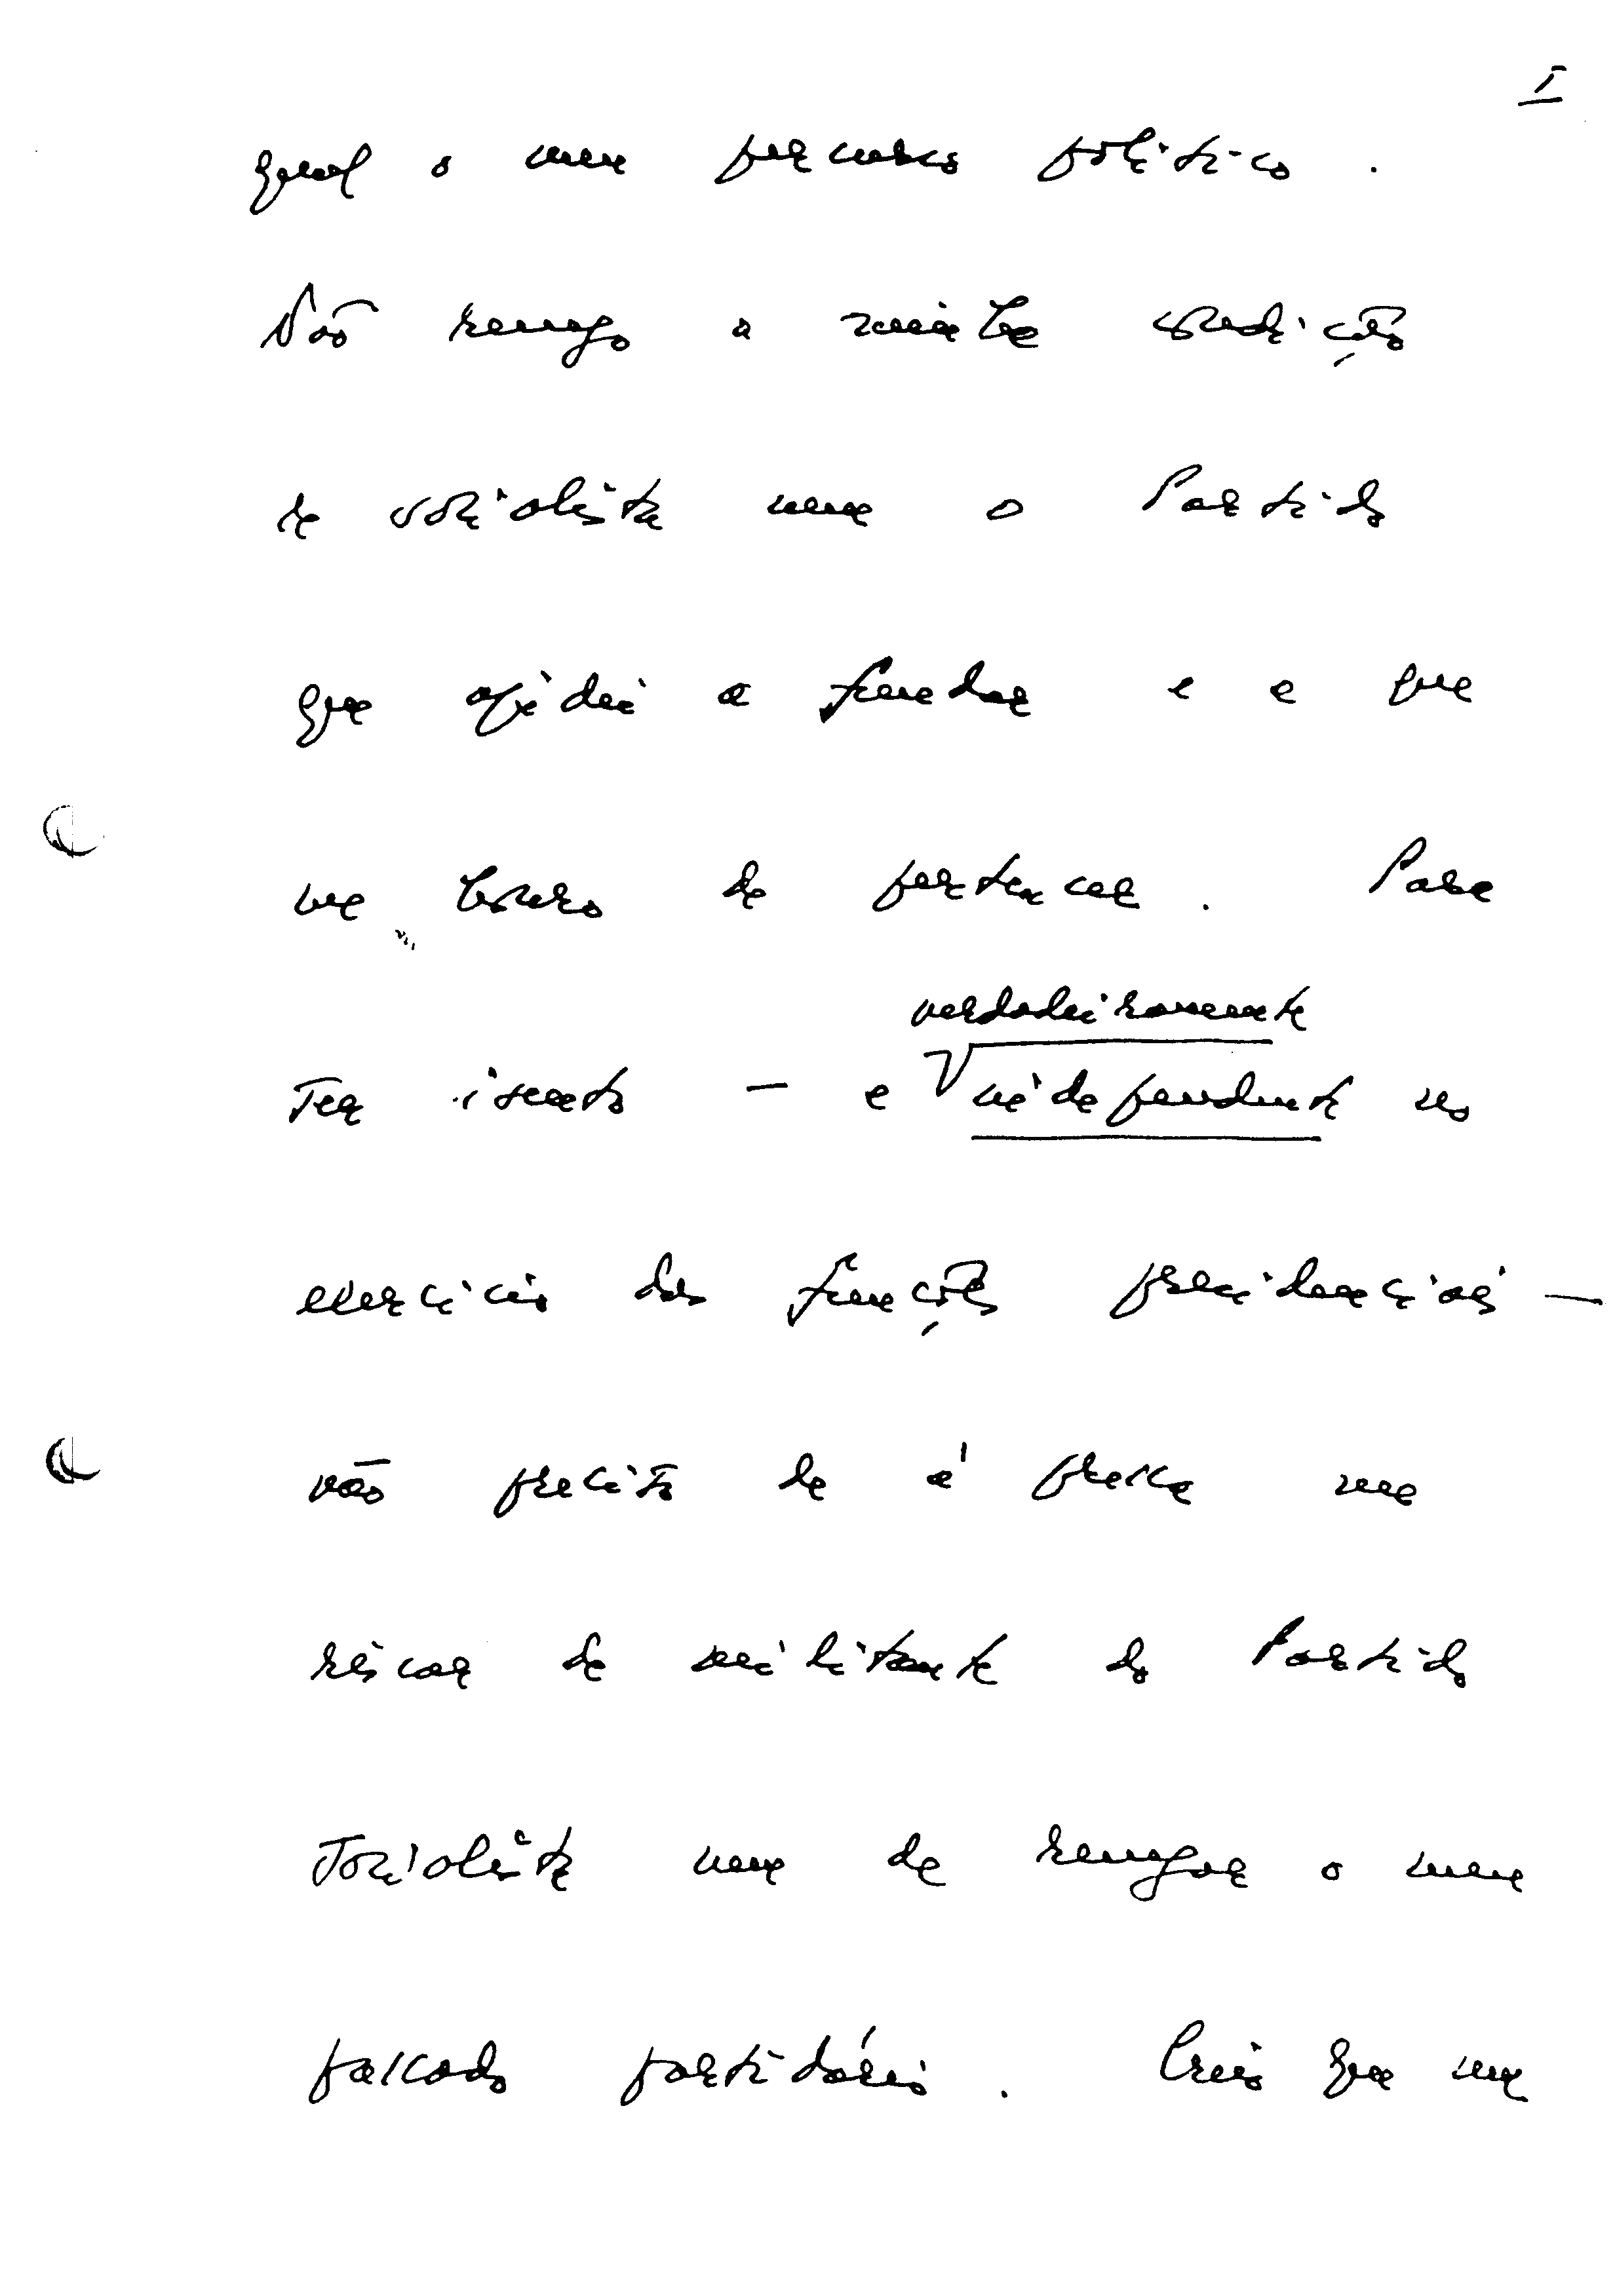 I
qual o meu percurso político.
Não renego a minha condição
de socialista nem o Partido
que ajudei a fundar e a que
me honro de pertencer. Para
verdadeiramente
ser isento — e independente no
exercício das funções presidenciais —
não preciso de à pressa me
riscar de militante do Partido
Socialista nem de renegar o meu
passado partidário. Creio que me